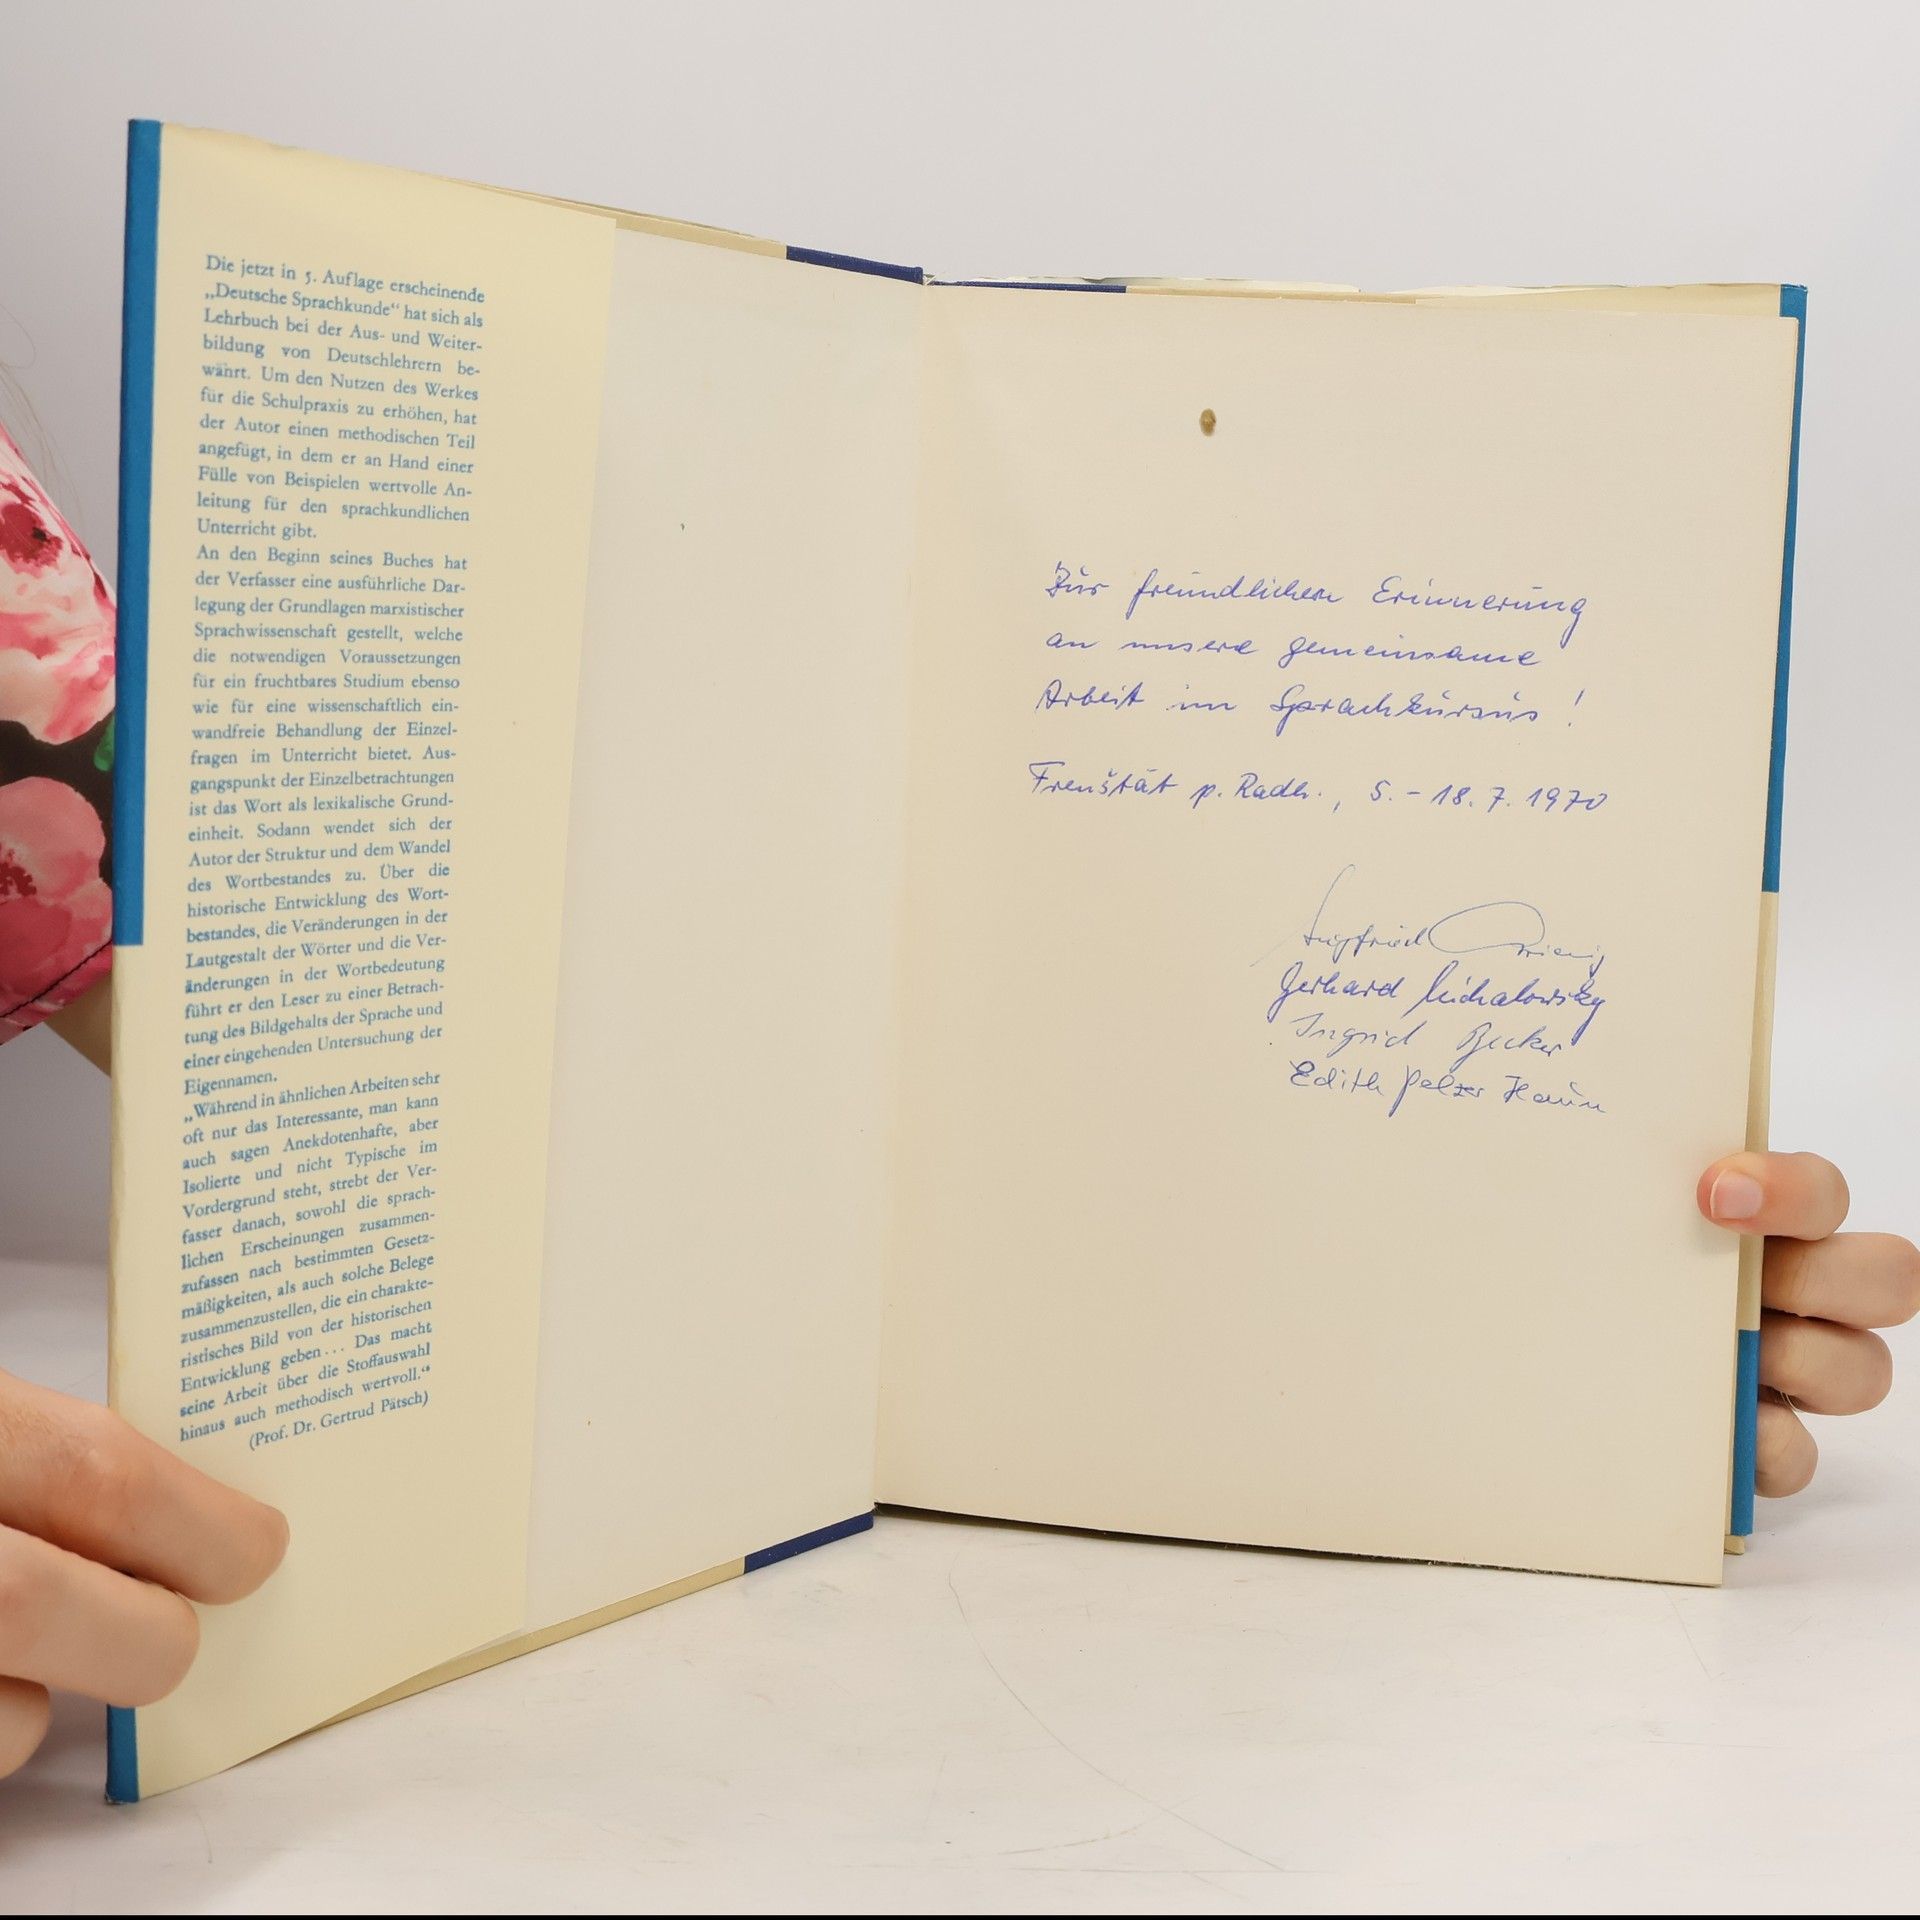 Die jetzt in 5. Auflage erscheinende
„Deutsche Sprachkunde“ hat sich als
Lehrbuch bei der Aus- und Weiter-
bildung von Deutschlehrern be-
währt. Um den Nutzen des Werkes
für die Schulpraxis zu erhöhen, hat
der Autor einen methodischen Teil
angefügt, in dem er an Hand einer
Fülle von Beispielen wertvolle An-
leitung für den sprachkundlichen
Unterricht gibt.
An den Beginn seines Buches hat
der Verfasser eine ausführliche Dar-
legung der Grundlagen marxistischer
Sprachwissenschaft gestellt, welche
die notwendigen Voraussetzungen
für ein fruchtbares Studium ebenso
wie für eine wissenschaftlich ein-
wandfreie Behandlung der Einzel-
fragen im Unterricht bietet. Aus-
gangspunkt der Einzelbetrachtungen
ist das Wort als lexikalische Grund-
einheit. Sodann wendet sich der
Autor der Struktur und dem Wandel
des Wortbestandes zu. Über die
historische Entwicklung des Wort-
bestandes, die Veränderungen in der
Lautgestalt der Wörter und die Ver-
änderungen in der Wortbedeutung
führt er den Leser zu einer Betrach-
tung des Bildgehalts der Sprache und
einer eingehenden Untersuchung der
Eigennamen.
„Während in ähnlichen Arbeiten sehr
oft nur das Interessante, man kann
auch sagen Anekdotenhafte, aber
Isolierte und nicht Typische im
Vordergrund steht, strebt der Ver-
fasser danach, sowohl die sprach-
lichen Erscheinungen zusammen-
zufassen nach bestimmten Gesetz-
mäßigkeiten, als auch solche Belege
zusammenzustellen, die ein charakte-
ristisches Bild von der historischen
Entwicklung geben... Das macht
seine Arbeit über die Stoffauswahl
hinaus auch methodisch wertvoll.“
(Prof. Dr. Gertrud Pätsch)
Zur freundlichen Erinnerung
an unsere gemeinsame
Arbeit im Sprachkursus!
Frenštát p. Radh., 5.-18.7.1970
Siegfried
Gerhard Michalowsky
Ingrid Becker
Edith Pelzer Haun